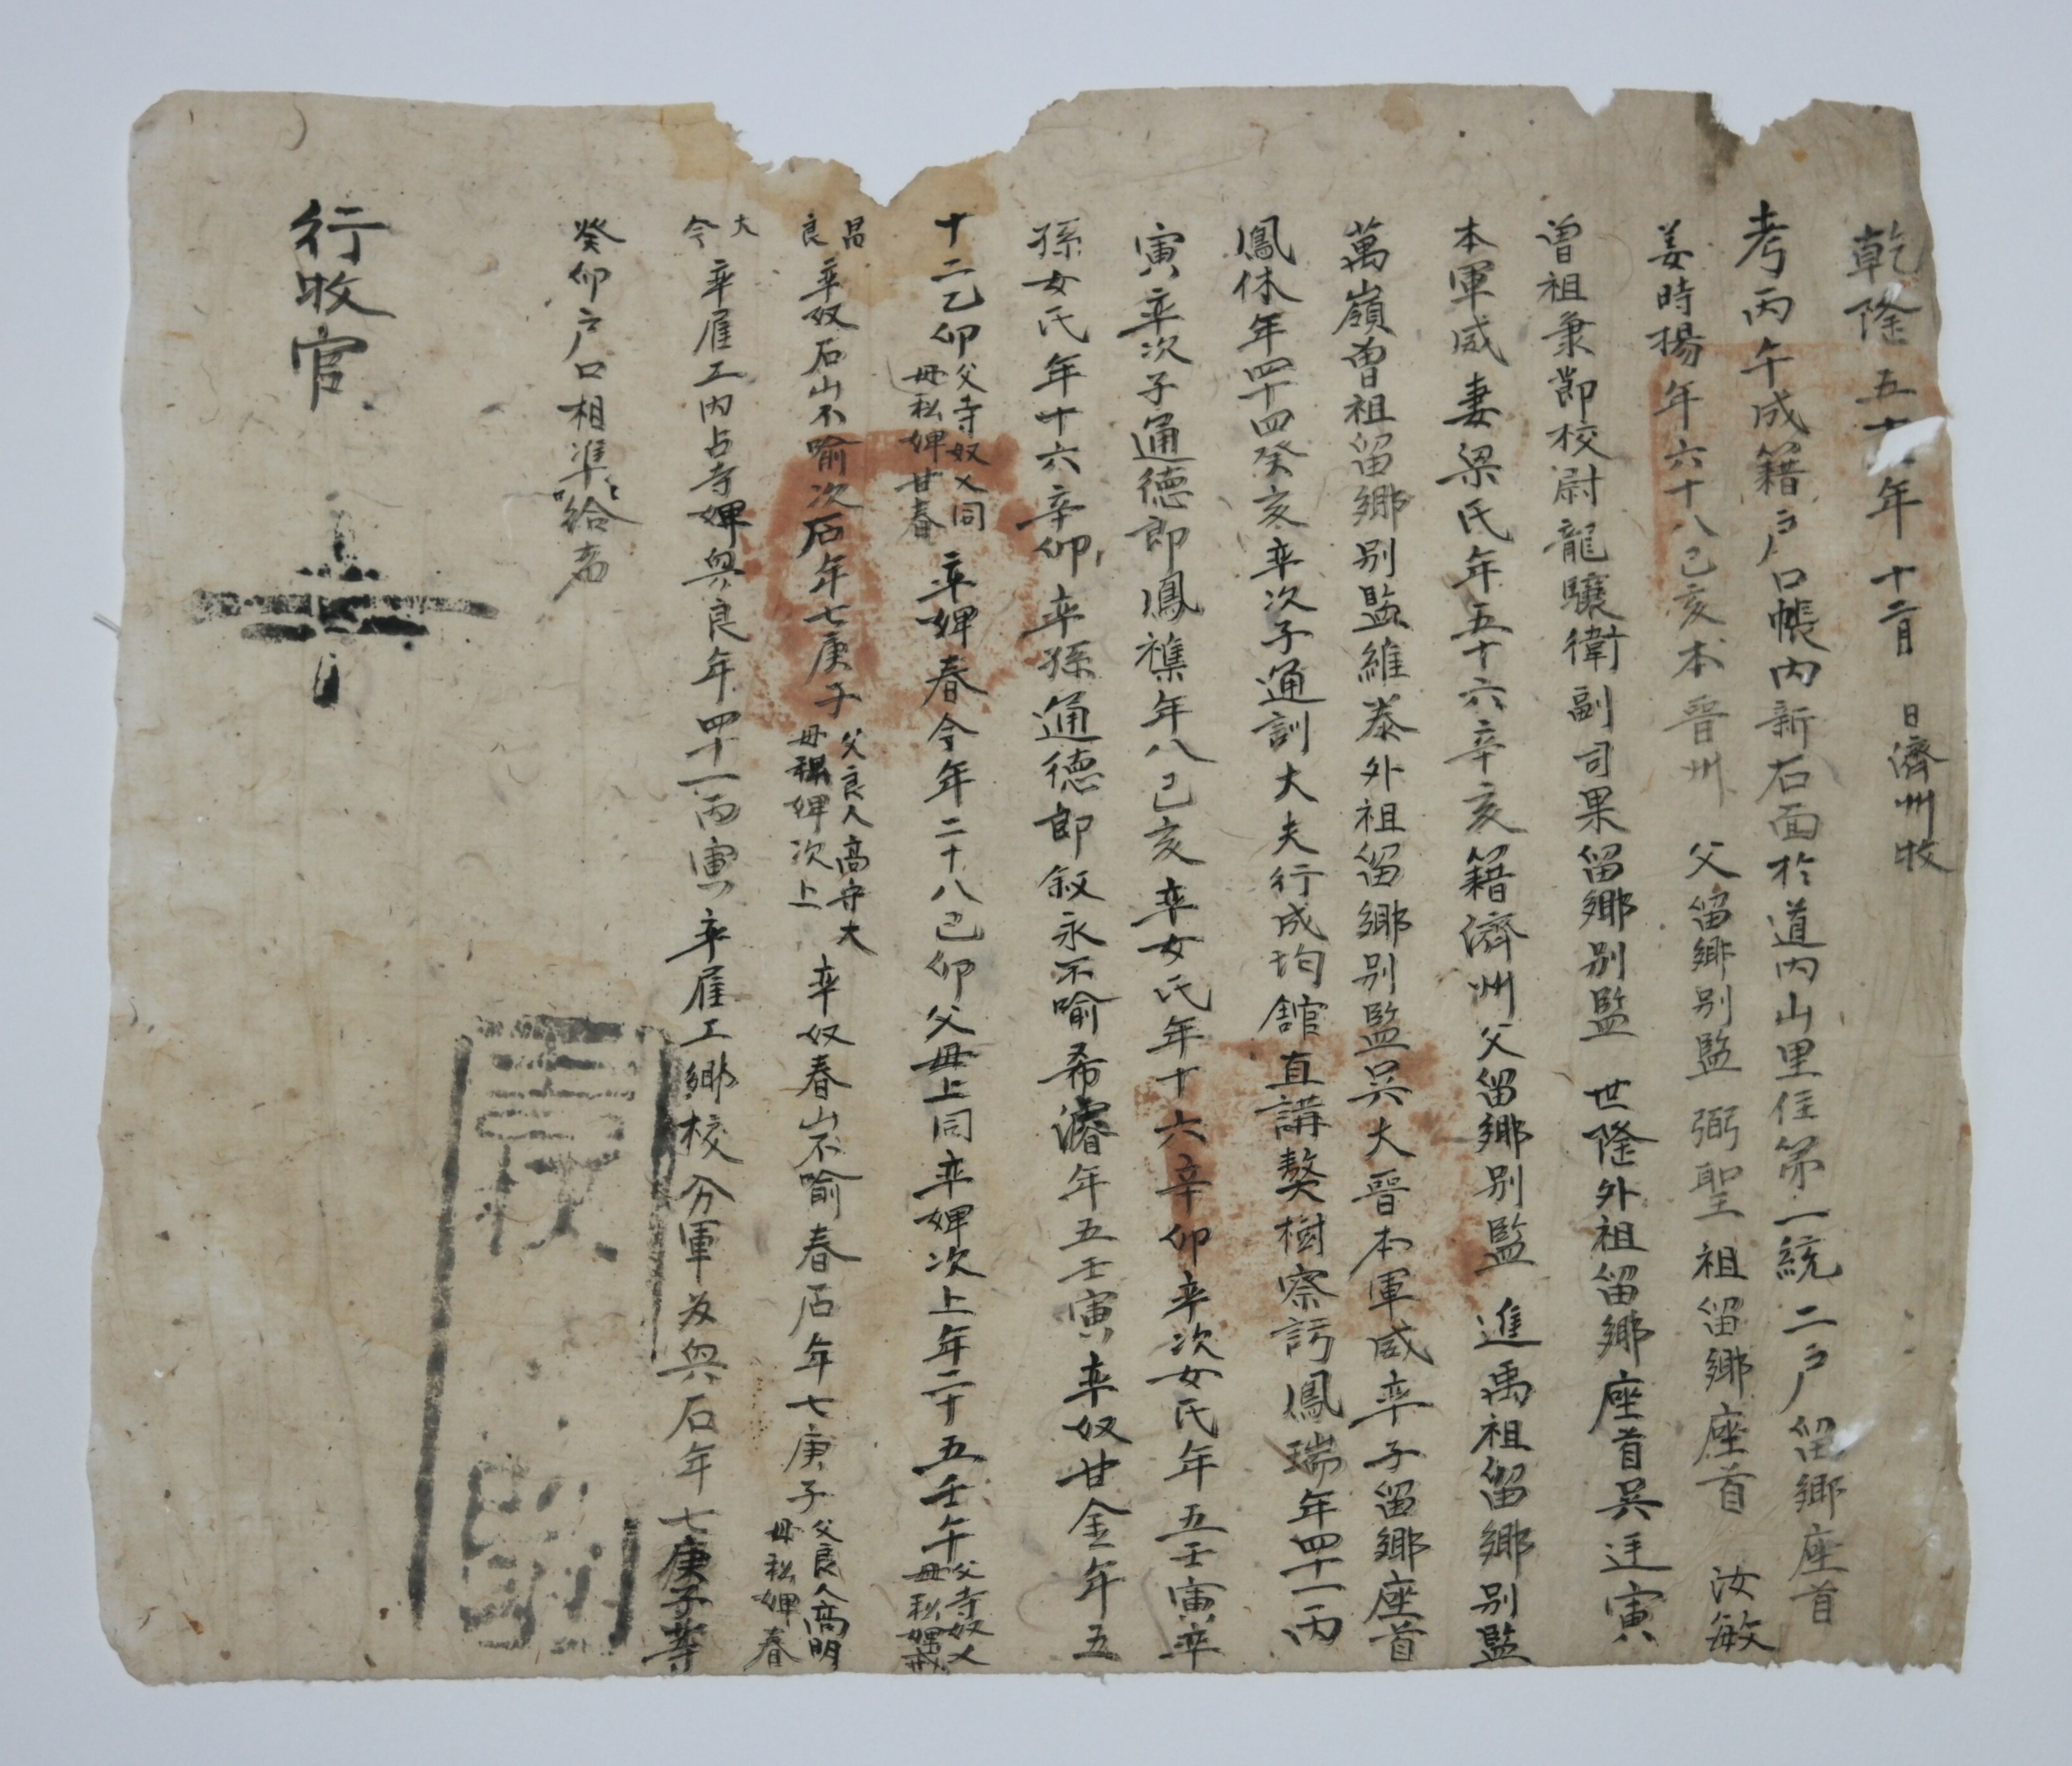 乾隆五十年十二月 日濟州牧
考丙午成籍戶口帳內新右面於道內山里住第一統二戶留鄉座首
姜時揚年六十八己亥本晉州 父留鄉別監 弼聖 祖留鄉座首 汝敏
曾祖秉節校尉龍驤衛副司果留鄉別監 世隆外祖留鄉座首吳廷寅
本軍威妻梁氏年五十六辛亥籍濟州父留鄉別監 進禹祖留鄉別監
萬嶺曾祖留鄉別監維泰外祖留鄉別監吳大晉本軍威率子留鄉座首
鳳休年四十四癸亥率次子通訓大夫行成均館直講獒樹察訪鳳瑞年四十一丙
寅率次子通德郎鳳樵年八己亥率女氏年十六辛卯率次女氏年五壬寅率
孫女氏年十六辛卯率孫通德郎敍永不喻希濬年五壬寅率奴甘金年五
十二乙卯父寺奴乂同母私婢甘春 率婢春今年二十八己卯父母上同率婢次上年二十五壬午父寺奴乂昌良母私婢戒
率奴石山不喻次石年七庚子父良人高守大母私婢次上 率奴春山不喻春石年七庚子父良人高明大母私婢春今
率雇工內占寺婢與良年四十一丙寅率雇工鄉校分軍友與石年七庚子等
癸卯戶口相準給者
行牧官